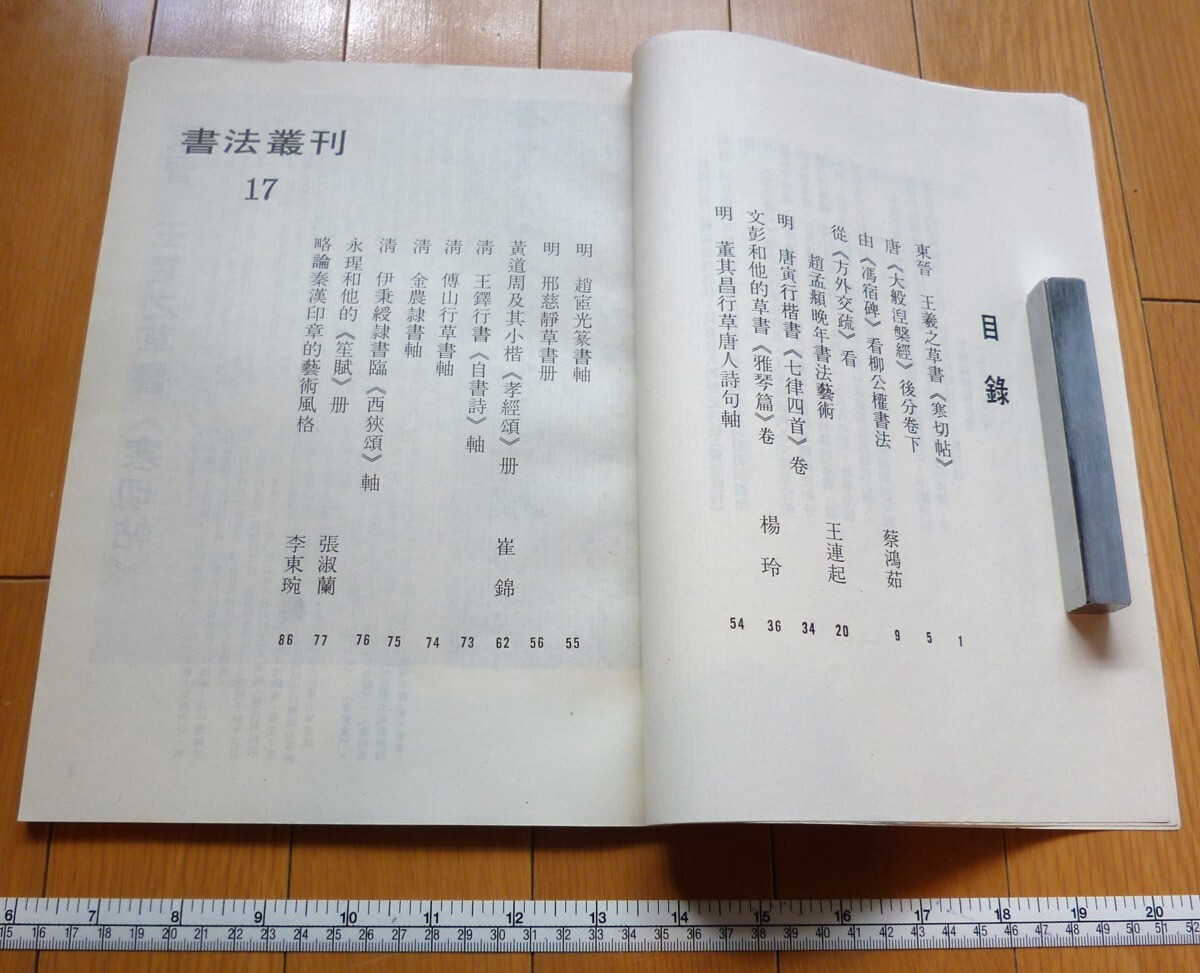 目錄
東晉 王羲之草書《寒切帖》 1
唐《大般涅槃經》後分卷下 5
由《馮宿碑》看柳公權書法 蔡鴻茹 9
從《方外交疏》看
趙孟頫晚年書法藝術 王連起 20
明 唐寅行楷書《七律四首》卷 34
文彭和他的草書《雅琴篇》卷 楊玲 36
明 董其昌行草唐人詩句軸 54
書法叢刊
17
明 趙宧光篆書軸 55
明 邢慈靜草書册 56
黃道周及其小楷《孝經頌》册 崔錦 62
清 王鐸行書《自書詩》軸 73
清 傅山行草書軸 74
清 金農隸書軸 75
清 伊秉綬隸書臨《西狹頌》軸 76
永瑆和他的《笙賦》册 張淑蘭 77
略論秦漢印章的藝術風格 李東琬 86
6 7 8 9 10 11 12 13 14 15 16 17 18 19 20
15 16 17 18 19 20 21 22 23 24 25 26 27 28 29 30 31 32 33 34 35 36 37 38 39 40 41 42 43 44 45 46 47 48 49 50 51 52